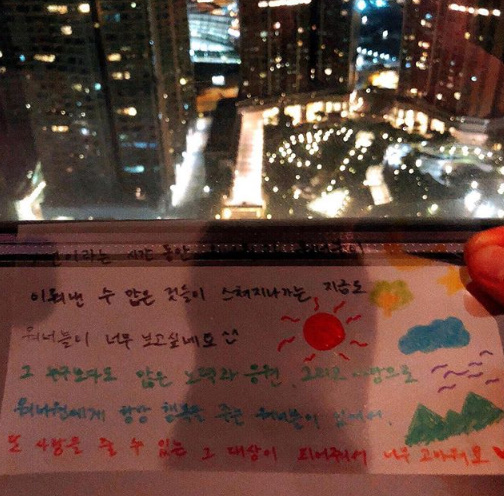 년이라는 시간 동안
이뤄낸 수 많은 것들이 스쳐지나가는 지금도
워너블이 너무 보고싶네요 ^^
그 누구보다도 많은 노력과 응원, 그리고 사랑으로
워너원에게 항상 행복을 주는 워너블이 있어서,
또 사랑을 줄 수 있는 그 대상이 되어줘서 너무 고마워요 ♥